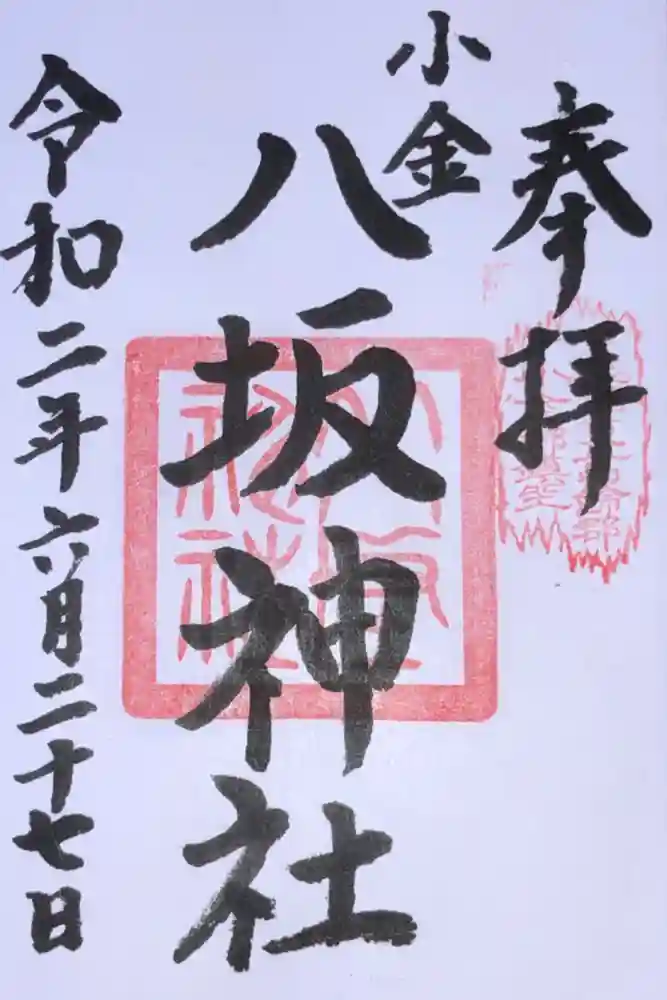 奉拝
小金
八坂神社
令和二年六月二十七日
八坂
神社